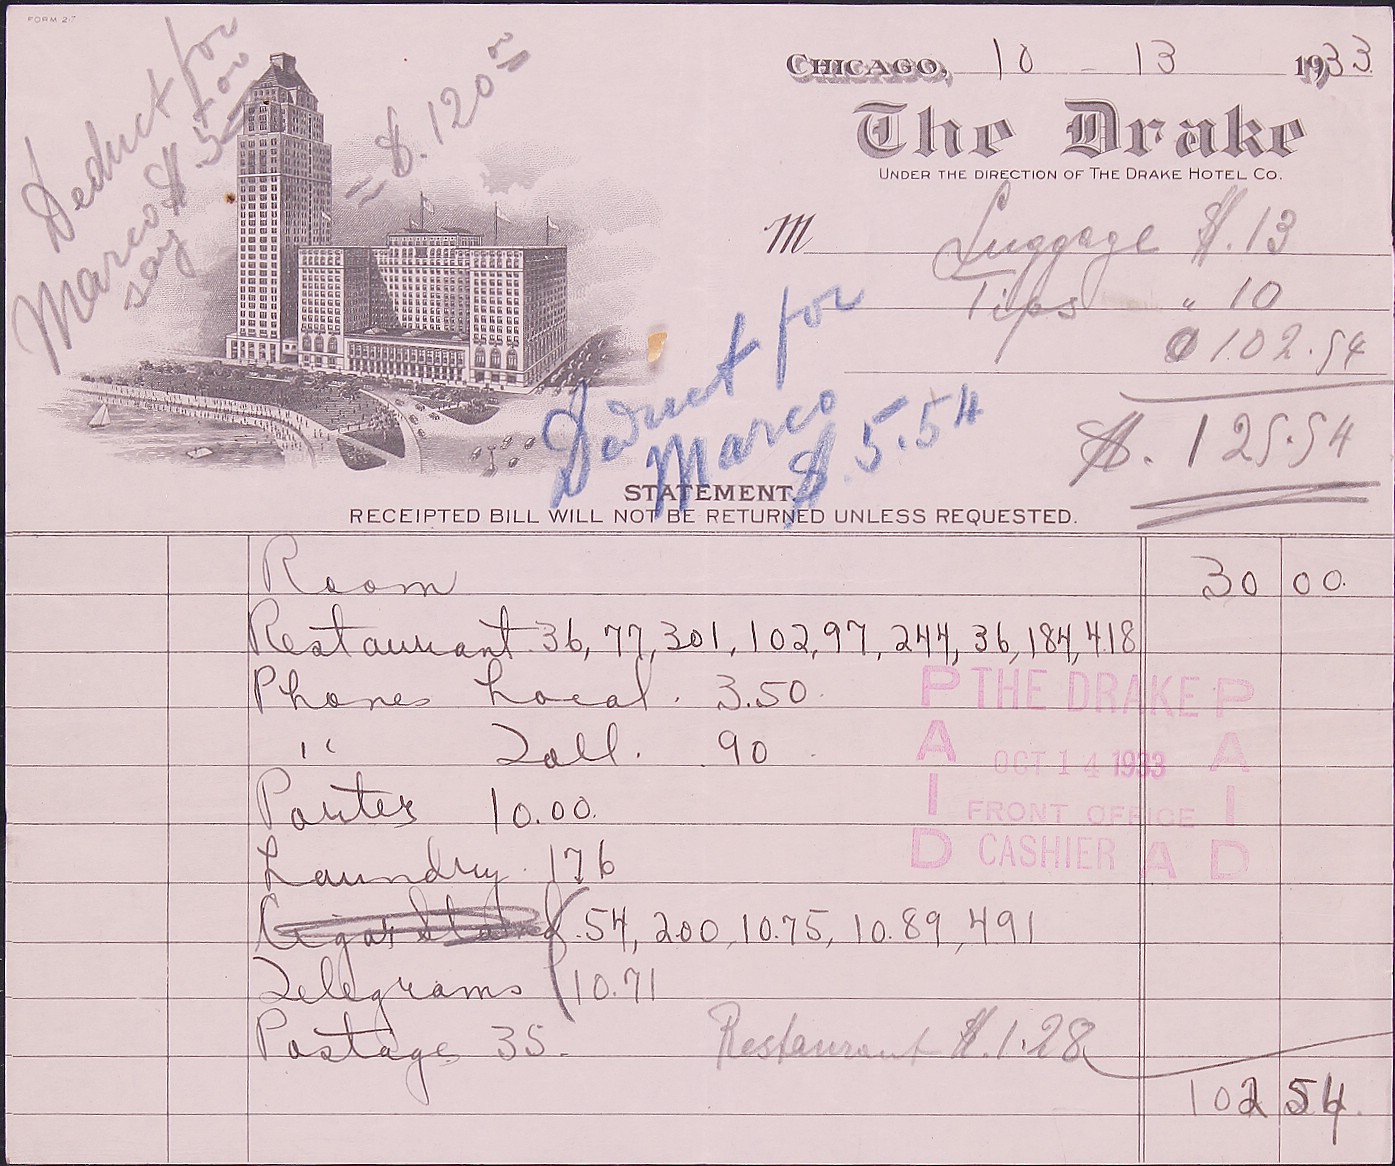 FORM 2-7
Deduct for
Marco $.5.00
say
= $.120.00 =
CHICAGO, 10 - 13 1933
The Drake
UNDER THE DIRECTION OF THE DRAKE HOTEL CO.
M Luggage $.13
Tips " 10
102.54
$. 125.54
Deduct for
Marco
$.5.54
STATEMENT.
RECEIPTED BILL WILL NOT BE RETURNED UNLESS REQUESTED.
Room 30 00.
Restaurant 36, 77, 301, 102, 97, 244, 36, 184, 418
Phones Local. 3.50
" Toll. .90
Porter 10.00.
Laundry. 176
Cigar Stand .54, 200, 10.75, 10.89, 491
Telegrams 10.71
Postage 35.
Restaurant $.1.28
102 54
PAID THE DRAKE PAID
OCT 14 1933
FRONT OFFICE
CASHIER A